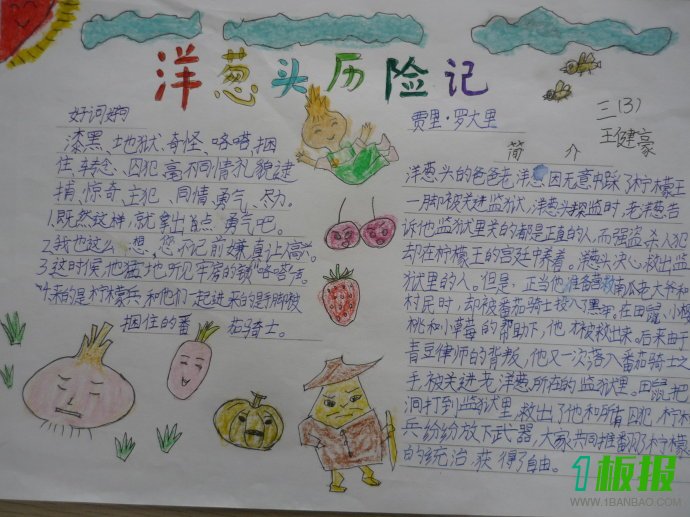 洋葱头历险记
三(3)
王健豪
好词好句
漆黑、地狱、奇怪、咯嗒、捆
住、转念、囚犯、毫、同情、礼貌、逮
捕、惊奇、主犯、同情、勇气、尽力。
1.既然这样,就拿出点勇气吧。
2.我也这么想,您不记前嫌,真让人高兴。
3.这时候,他猛地听见牢房的锁"咯嗒"声。
4.来的是柠檬兵,和他们一起进来的是手脚被
捆住的番茄骑士。
贾里·罗大里
简介
洋葱头的爸爸老洋葱因无意中踩了柠檬王
一脚却被关进监狱,洋葱头探监时,老洋葱告
诉他监狱里关的都是正直的人,而强盗杀人犯
却在柠檬王的宫廷中养着。洋葱头决心救出监
狱里的人。但是,正当他准备营救南瓜老大爷和
村民时,却被番茄骑士投入了黑牢,在田鼠,小樱
桃和小草莓的帮助下,他被救出来。后来由于
青豆律师的背叛,他又一次落入番茄骑士之
手,被关进老洋葱所在的监狱里。田鼠把
洞打到监狱里,救出了他和所有囚犯,柠檬
兵纷纷放下武器,大家共同推翻了柠檬
的统治,获得了自由。
1板报
WWW.1BANBAO.COM